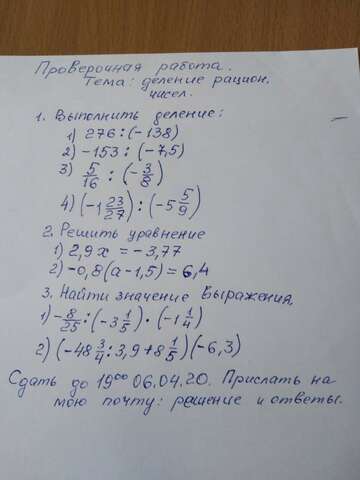 Проверочная работа.
Тема: деление рацион.
чисел.
1. Выполнить деление:
1) 276 : (-138)
2) -153 : (-7,5)
3) 5/16 : (-3/8)
4) (-1 23/27) : (-5 5/9)
2. Решить уравнение
1) 2,9x = -3,77
2) -0,8(a-1,5) = 6,4
3. Найти значение выражения.
1) -8/25 : (-3 1/5) · (-1 1/4)
2) (-48 3/4 : 3,9 + 8 1/5)(-6,3)
Сдать до 19⁰⁰ 06.04.20. Прислать на
мою почту: решение и ответы.